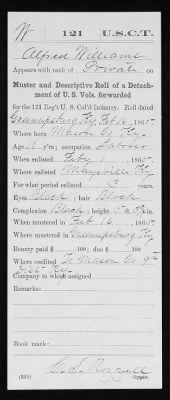 W 121 U.S.C.T.
Alfred Williams
Appears with rank of Private on
Muster and Descriptive Roll of a Detachment of U. S. Vols. forwarded
for the 121 Reg't U. S. Col'd Infantry. Roll dated
Greenupsburg Ky Feb 16, 1865.
Where born Mason Co. Ky
Age y'rs; occupation Laborer
When enlisted Feby 1, 1865.
Where enlisted Maysville Ky
For what period enlisted 3 years.
Eyes Black; hair Black
Complexion Black; height 5 ft. in.
When mustered in Feb 16, 1865.
Where mustered in Greenupsburg Ky
Bounty paid $ 100; due $ 100
Where credited Mason Co 9th
Dist Ky.
Company to which assigned
Remarks:
Book mark:
(339) Copyist.